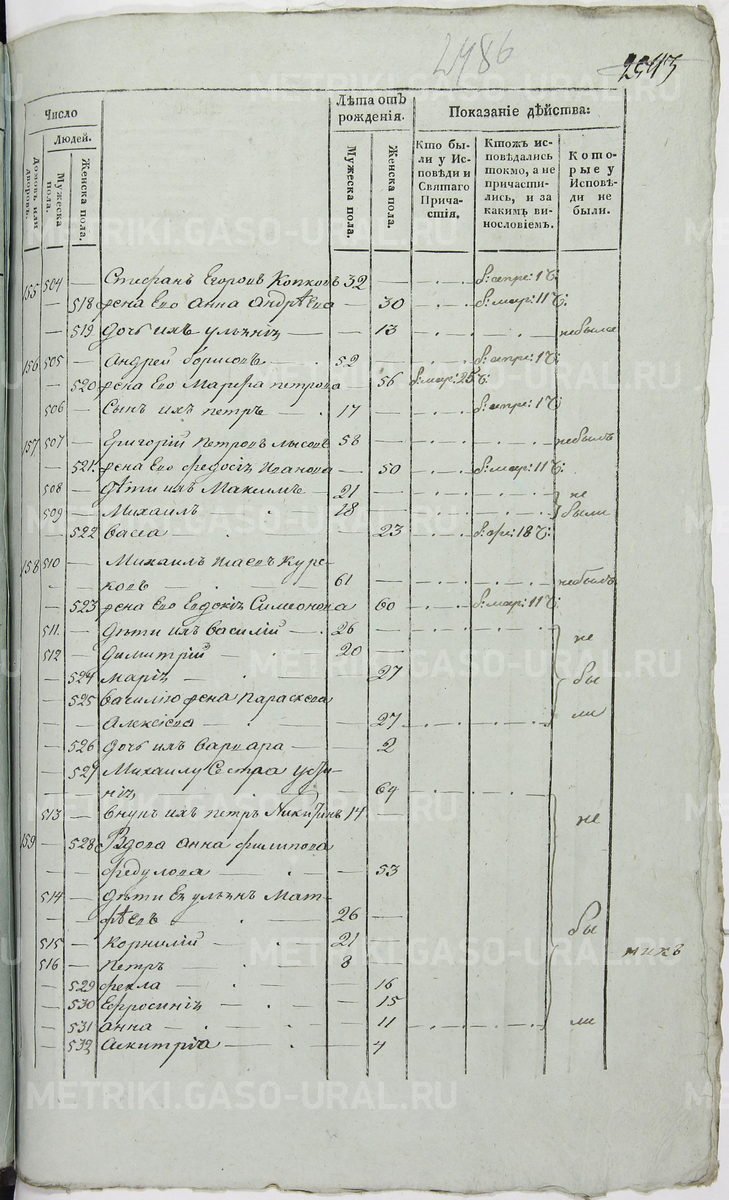 2486
2543
Число
Людей.
Домовъ или дворовъ.
Мужеска пола.
Женска пола.
Лѣта отъ рожденія.
Мужеска пола.
Женска пола.
Показаніе дѣйства:
Кто были у Исповѣди и Святаго Причастія.
Ктожъ исповѣдались токмо, а не причастились, и за какимъ винословіемъ.
Которые у Исповѣди не были.
155 504 — Стефанъ Егоровъ Копковъ 32 — б: апре: 1 Ч:
— 518 жена Его Анна Андрѣева — 30 б: мар: 11 Ч:
— 519 дочь ихъ — 13 небыла
156 505 — Андрей борисовъ — 52 — б: апре: 1 Ч:
— 520 жена Его Марфа петрова — 56 б: мар: 25 Ч:
506 — Сынъ ихъ петръ — 17 — б: апре: 1 Ч:
157 507 — Григорій Петровъ лысовъ 58 — небылъ
— 521 жена Его федосія Иванова — 50 б: мар: 11 Ч:
508 — дѣти ихъ Максимъ — 21 — не
509 — Михаилъ 18 — были
— 522 васса — 23 18 Ч:
158 510 — Михаилъ Исаевъ Курс-
ковъ 61 — небылъ
— 523 жена Его Евдокія Симеонова — 60 б: мар: 11 Ч:
511 — дѣти ихъ василій — 26 — не
512 — димитрій — 20 —
— 524 марія — 27 бы
— 525 василію жена параскева
Алексіева — 27 ли
— 526 дочь ихъ варвара — 2
— 527 Михаилу Сестра усти-
нія — 64
513 — внукъ ихъ петръ Никитинъ 14 не
159 — 528 Вдова анна филипова
федулова — 53
514 — дѣти Ея ульянъ Мат-
фѣевъ — 26 — бы
515 — корнилій — 21 —
516 — петръ — 8 —
— 529 фекла — 16
— 530 Ефросинія — 15
— 531 анна — 11 ли
— 532 — 4
METRIKI.GASO-URAL.RU